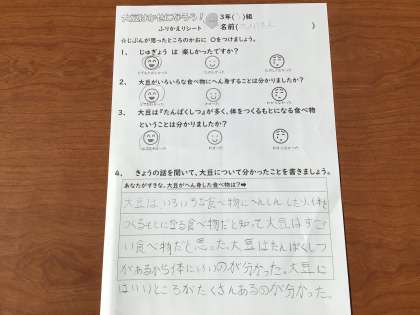 大豆はかせになろう！ 3年( )組
ふりかえりシート 名前( )
☆じぶんが思ったところのかおに ○をつけましょう。
1、 じゅぎょう は 楽しかったですか？
2、 大豆がいろいろな食べ物にへん身することは分かりましたか？
3、 大豆は『たんぱくしつ』が多く、体をつくるもとになる食べ物
ということは分かりましたか？
4、 きょうの話を聞いて、大豆について分かったことを書きましょう。
あなたがすきな、大豆がへん身した食べ物は？➡
大豆は いろいろな食べ物にへんしんしたり、体を
つくるもとになる食べ物だと知って大豆はすご
い食べ物だと思った。大豆はたんぱくしつ
があるから体にいいのが分かった。大豆に
はいいところがたくさんあるのが分かった。